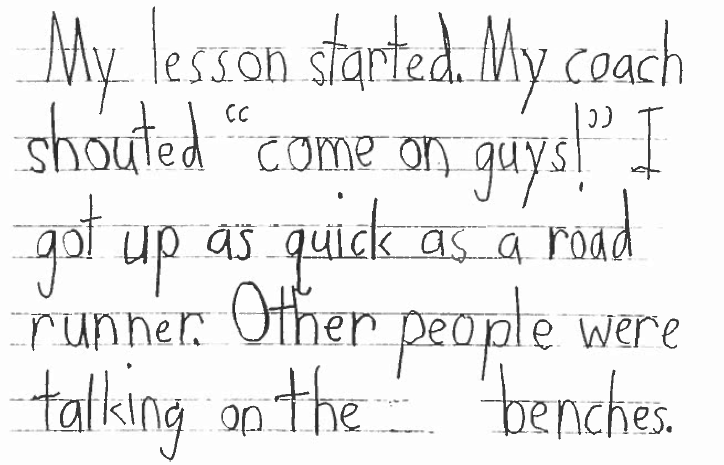 My lesson started. My coach
shouted “come on guys!” I
got up as quick as a road
runner. Other people were
talking on the benches.